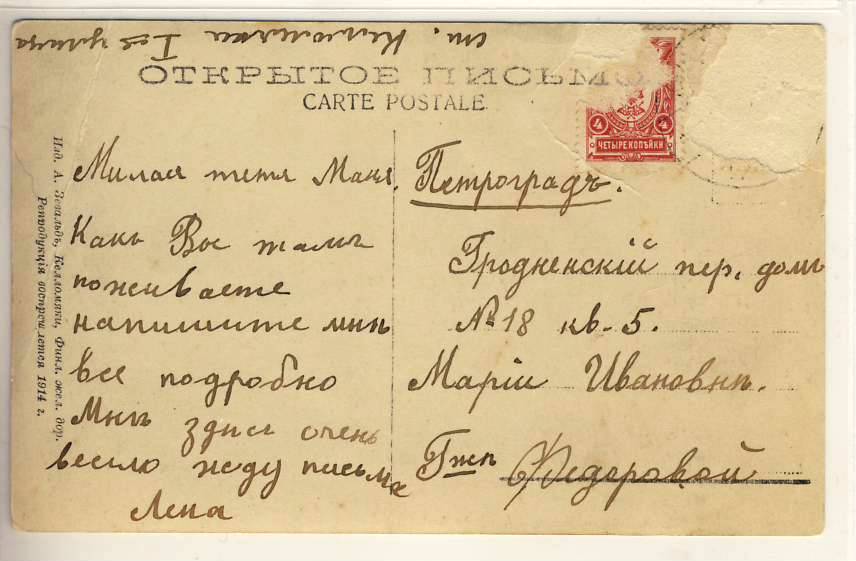 ст. Келломяки I ая улица
ОТКРЫТОЕ ПИСЬМО
CARTE POSTALE
4 4
ЧЕТЫРЕ КОПѢЙКИ
Изд. А. Зевальдъ, Келломяки, Финл. жел. дор.
Репродукція воспрещается 1914 г.
Милая тетя Маня.
Какъ Вы тамъ
поживаете
напишите мнѣ
все подробно
Мнѣ здѣсь очень
весело жду письма
Лена
Петроградъ.
Гродненскій пер. домъ
№ 18 кв. 5.
Маріи Ивановнѣ.
Гжѣ Ѳедоровой